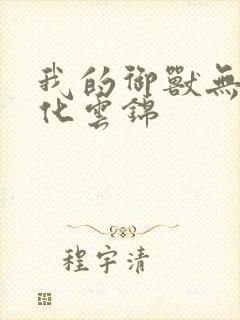 我的御獸無
化雲錦
程宇清